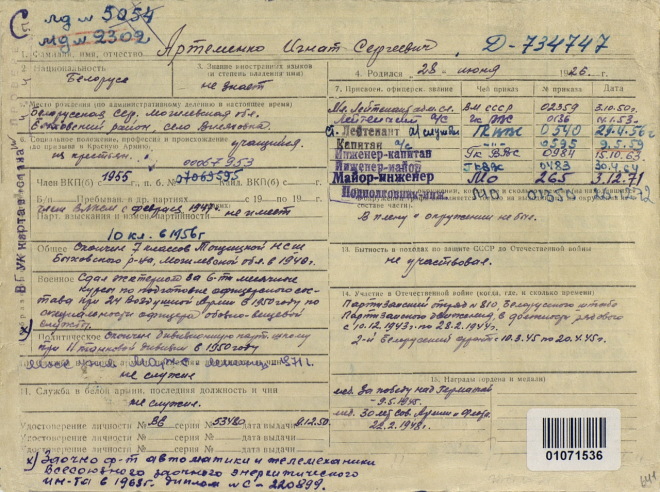 С
мд № 5054
мд № 2302
Артеменко Игнат Сергеевич
Д-734747
1. Фамилия, имя, отчество
2. Национальность
Белорус
3. Знание иностранных языков
(и степень владения ими)
не знает
4. Родился 28 июня 1926 г.
Место рождения (по административному делению в настоящее время)
Белорусская ССР, Могилевская обл.
Быховский район, село
Социальное положение и происхождение
(до призыва в Красную Армию)
учащийся
из крестьян
00067953
Член ВКП(б) с 1955 г., п. б. № 07063595
Член ВКП(б) с
Б/п Пребывание в др. партиях с 19 по 19 г.
член ВЛКСМ с февраля
Парт. взыскания и измен. партийности
не имеет
10 кл. в 1956г
Общее Окончил 7 классов НСШ
Быховского р-на, Могилевской обл. в 1940г.
Военное Сдал экстерном за 6-ти месячные
курсы по подготовке офицерского сос-
тава при 24 Воздушной Армии в 1950 году по
специальности офицера обозно-вещевой
службы
х)
Политическое Окончил дивизионную парт. школу
при 11 танковой дивизии в 1950 году
не служил
11. Служба в белой армии, последняя должность и чин
не служил
Удостоверение личности № ВВ серия 53480 дата выдачи 9.12.50
Удостоверение личности № серия дата выдачи
Удостоверение личности № серия дата выдачи
х) Заочно ф-т автоматики и телемеханики
Всесоюзного заочного энергетического
ин-та в 1968г. диплом №С-220899.
В УК карта в справ.
7. Присвоен. офицерск. звание Чей приказ № приказа Дата
Мл. Лейтенант адм. сл. ВМ СССР 02359 3.10.50г.
Лейтенант а/с 0136 1.53г.
Ст. Лейтенант а/службы 0540 29.4.56г
Капитан а/с 0595 9.5.59
Инженер-капитан ГК ВВС 0984 15.10.63
Инженер-майор ГКВВС 0483
Майор-инженер МО 265 3.12.71
Подполковник-инж. МО
В плену и окружении не был.
13. Бытность в походах на защите СССР до Отечественной войны
не участвовал.
14. Участие в Отечественной войне (когда, где, и сколько времени)
Партизанский отряд №810, Белорусского штаба
Партизанского движения, в должности рядового
с 10.12.1943г. по 28.2.1944г.
2-й Белорусский фронт с 10.3.45 по 20.4.45г.
15. Награды (ордена и медали)
мед. За победу над Германией
9.5.1945г.
мед. 30 лет Сов. Армии и Флота
22.2.1948г.
01071536